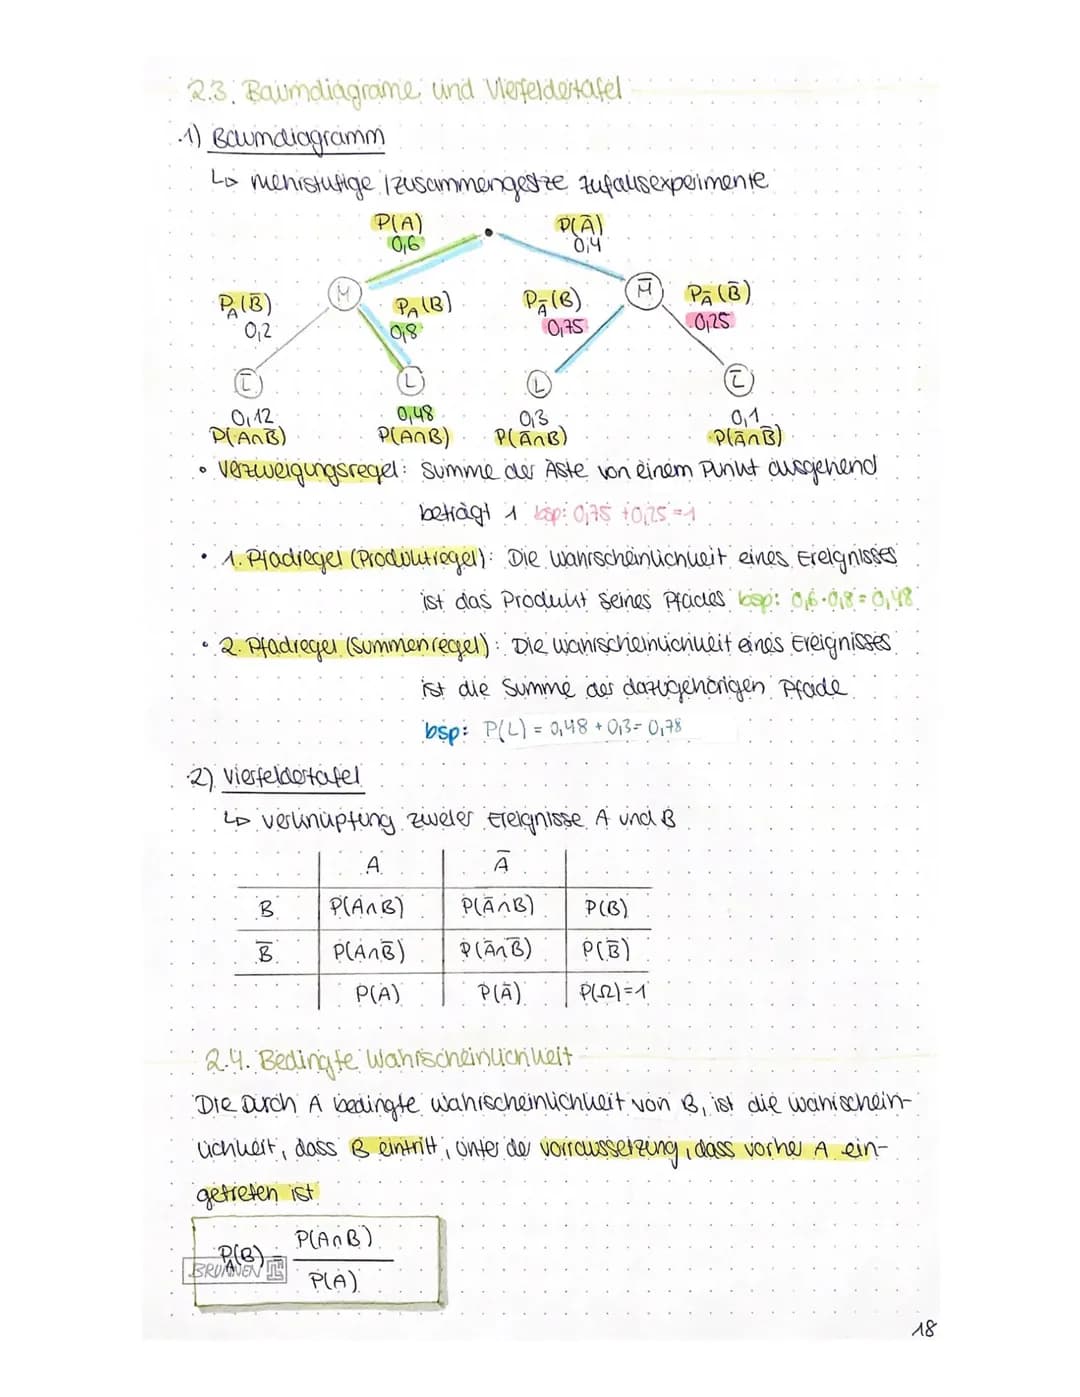 2.3. Baumdiagrame und Vierfeldertafel
1) Baumdiagramm
↳ mehrstufige / zusammengestze Zufallsexperimente
P(A) P(Ā)
0,6 0,4
M M̄
P_A(B̄) P_A(B) P_Ā(B) P_Ā(B̄)
0,2 0,8 0,75 0,25
L̄ L L L̄
0,12 0,48 0,3 0,1
P(A∩B̄) P(A∩B) P(Ā∩B) P(Ā∩B̄)
• Verzweigungsregel: Summe der Äste von einem Punkt ausgehend
beträgt 1 bsp: 0,75 + 0,25 = 1
• 1. Pfadregel (Produktregel): Die Wahrscheinlichkeit eines Ereignisses
ist das Produkt seines Pfades bsp: 0,6·0,8 = 0,48
• 2. Pfadregel (Summenregel): Die Wahrscheinlichkeit eines Ereignisses
ist die Summe der dazugehörigen Pfade
bsp: P(L) = 0,48 + 0,3 = 0,78
2) Vierfeldertafel
↳ Verknüpfung zweier Ereignisse A und B
A Ā
B P(A∩B) P(Ā∩B) P(B)
B̄ P(A∩B̄) P(Ā∩B̄) P(B̄)
P(A) P(Ā) P(Ω)=1
2.4. Bedingte Wahrscheinlichkeit
Die Durch A bedingte Wahrscheinlichkeit von B, ist die Wahrschein-
lichkeit, dass B eintritt, unter der Vorraussetzung, dass vorher A ein-
getreten ist
P_A(B) = P(A∩B)
P(A)
BRUNNEN
18